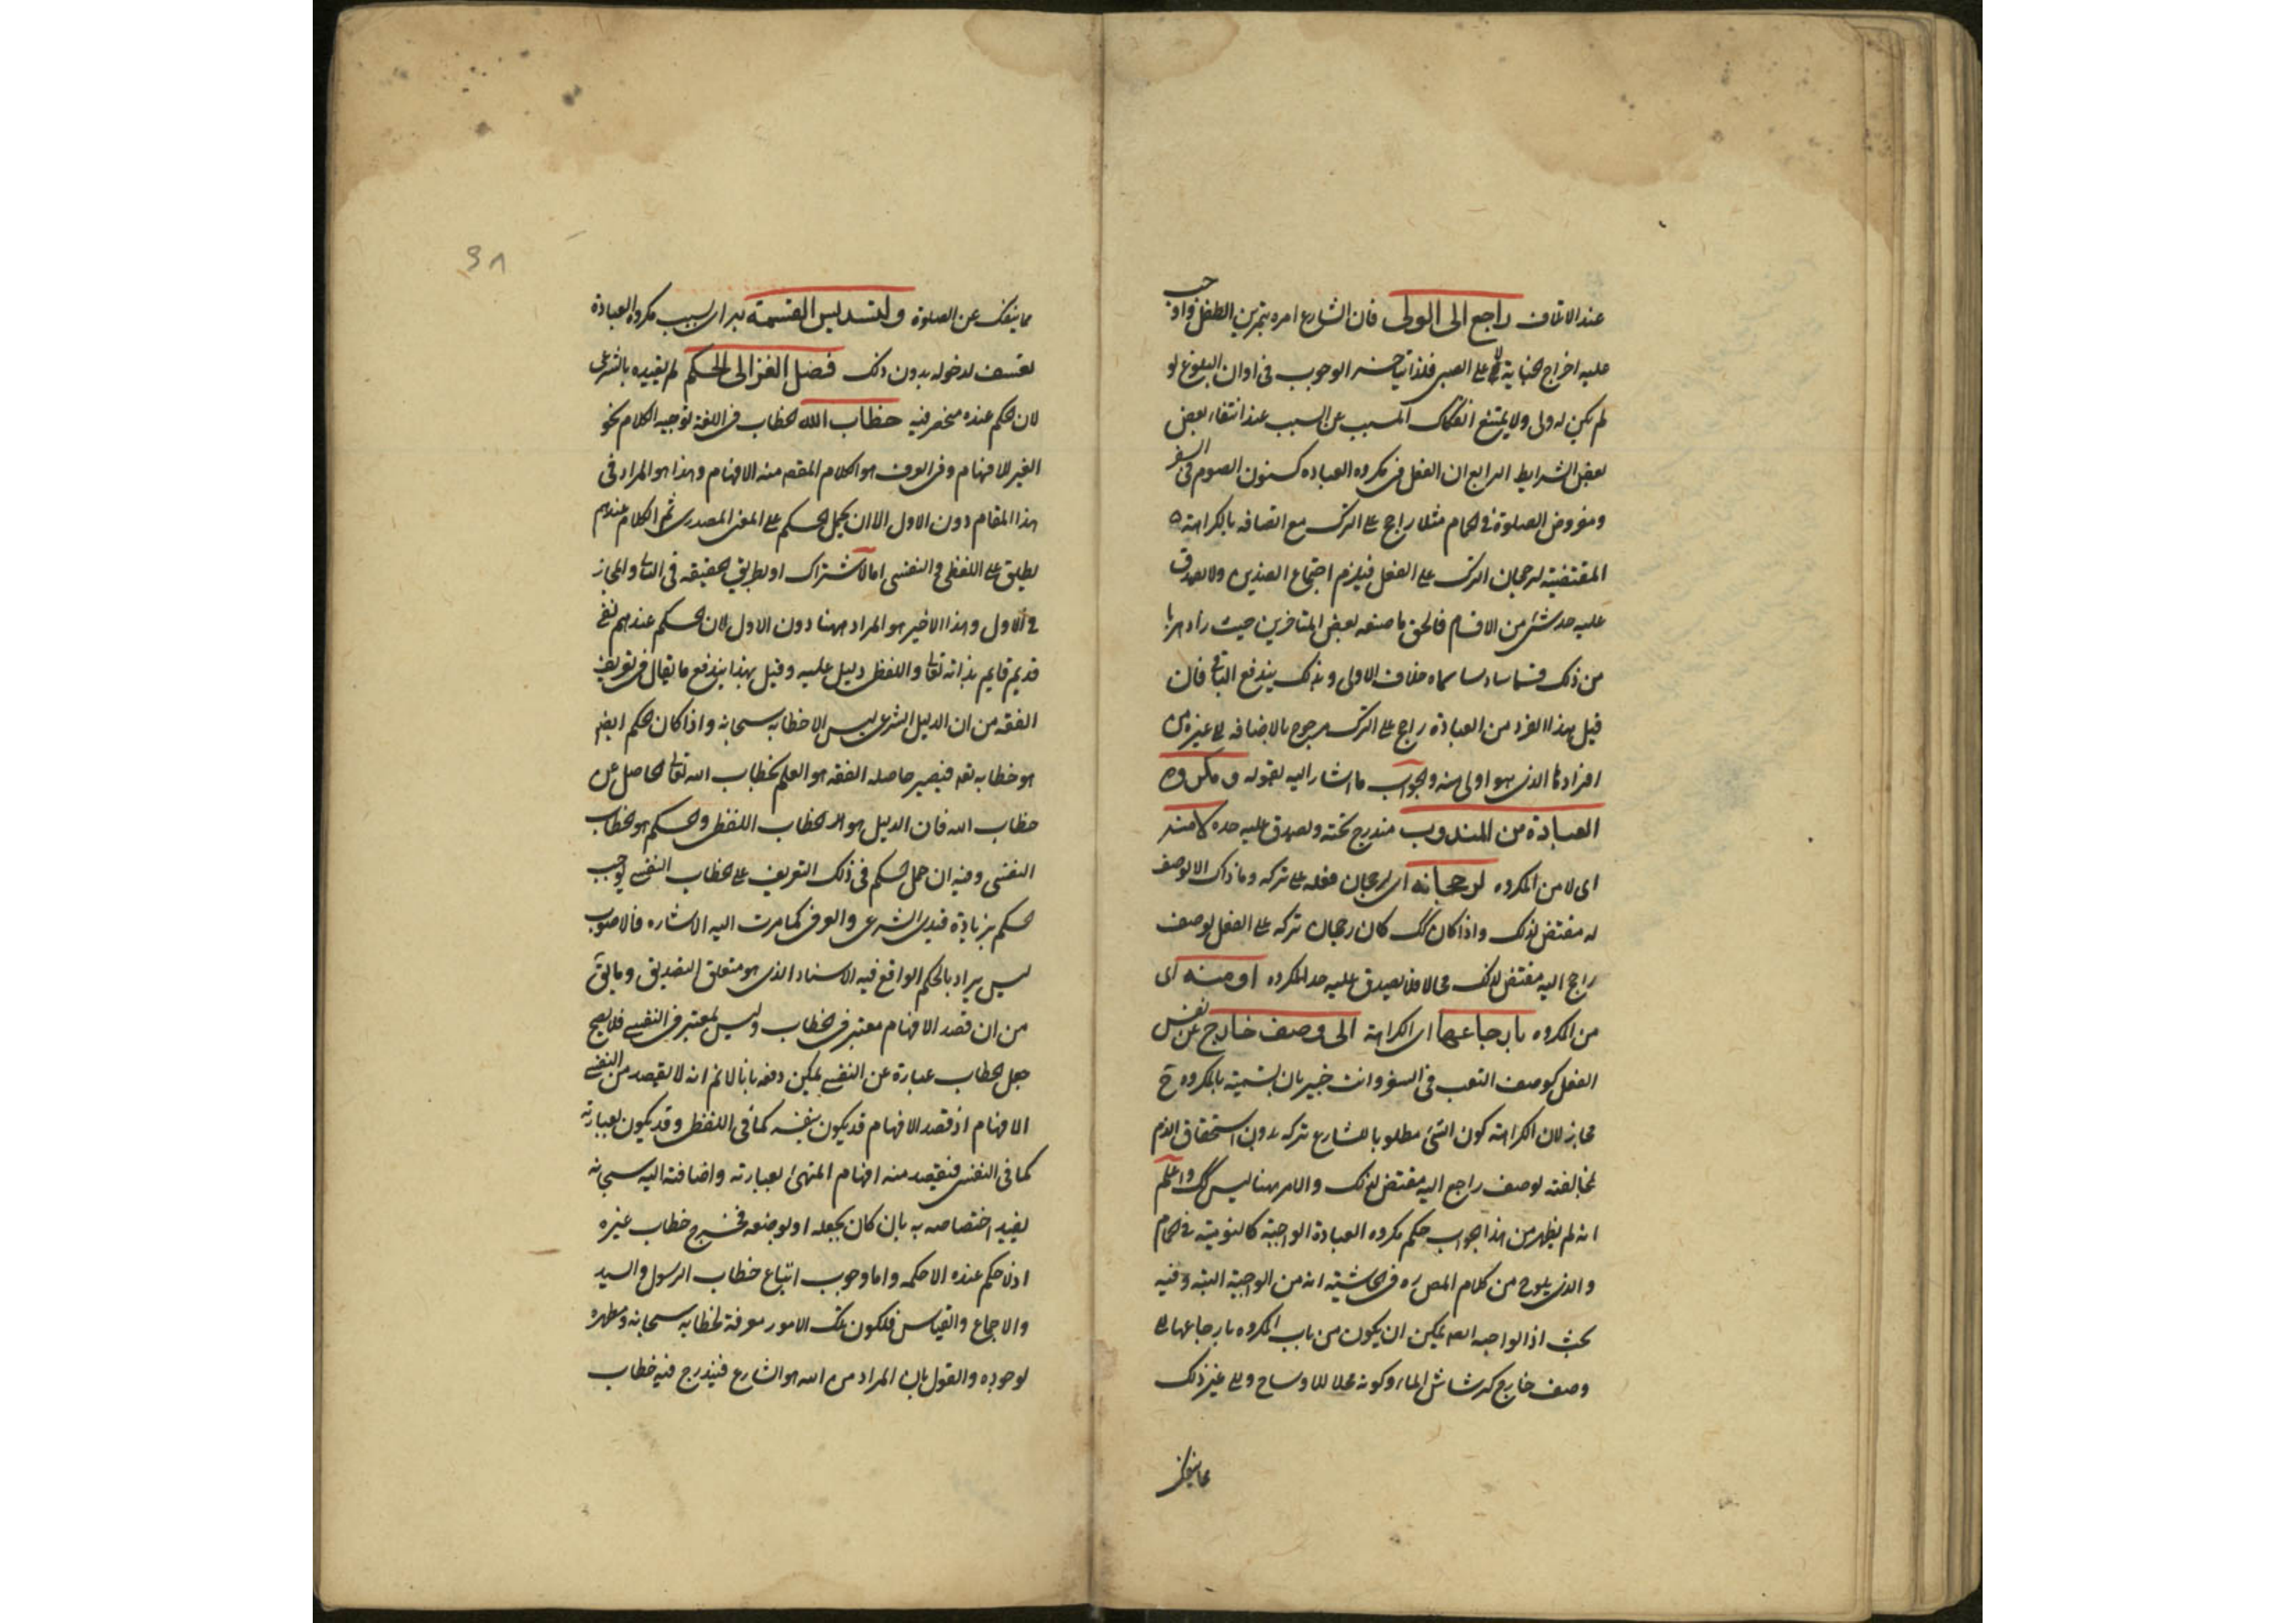 عند الاتلاف راجع الى الولى فان الشارع امره بتمرين الطفل واوجب
عليه اخراج الجناية لا على الصبى فلذا الوجوب فى اوان البلوغ لو
لم يكن له ولى ولا يمتنع انفكاك المسبب عن السبب عند انتفاء بعض
بعض الشرايط الرابع ان الفعل فى مكروه العباده كمسنون الصوم فى السفر
ومفروض الصلوة فى الحمام مثلا راجح على الترك مع اتصافه بالكراهة
المقتضية لرجحان الترك على الفعل فيلزم اجتماع الضدين ولا يصدق
عليه حد شئ من الاقسام فالحق ما صنعه بعض المتاخرين حيث زاد هربا
من ذلك قسما سادسا سماه خلاف الاولى وبذلك يندفع فان
قيل هذا الفرد من العبادة راجح على الترك مرجوح بالاضافه الى غيره من
افرادها الذى هو اولى منه والجواب ما اشار اليه بقوله ومكروه
العبادة من المندوب مندرج تحته ويصدق عليه حده لا منه
اى لا من المكروه لرجحانه اى لرجحان فعله على تركه وما ذاك الا لوصف
له مقتض لذلك واذا كان كك كان رجحان تركه على الفعل لوصف
راجع اليه مقتض لذلك محالا فلا يصدق عليه حد المكروه او منه اى
من المكروه بارجاعها اى الكراهة الى وصف خارج عن نفس
الفعل كوصف التعب فى السفر وانت خبير بان تسميته بالمكروه ح
مجاز لان الكراهة كون الشئ مطلوبا للشارع تركه بدون استحقاق الذم
لمخالفته لوصف راجع اليه مقتض لذلك والامر ههنا ليس كك واعلم
انه لم يظهر من هذا الجواب حكم مكروه العبادة الواجبة كاليومية فى الحمام
والذى يلوح من كلام المص ره فى الحاشية انه من الواجبة البتة وفيه
بحث اذ الواجبه ايضا يمكن ان يكون من باب المكروه بارجاعها الى
وصف خارج كرشاش الماء وكونه محلا للاوساخ والى غير ذلك
مما ينفك
مما ينفك عن الصلوة ولتسديس القسمة به اى بسبب مكروه العبادة
تعسف لدخوله بدون ذلك فصل الغزالى الحكم لم يقيده بالشرعى
لان الحكم عنده منحصر فيه خطاب الله الخطاب فى اللغة توجيه الكلام نحو
الغير للافهام وفى العرف هو الكلام المقصود منه الافهام وهذا هو المراد فى
هذا المقام دون الاول الا ان يحمل الحكم على المعنى المصدرى ثم الكلام عندهم
يطلق على اللفظى والنفسى اما بالاشتراك او بطريق الحقيقه فى الثانى والمجاز
فى الاول وهذا الاخير هو المراد ههنا دون الاول لان الحكم عندهم نفسى
قديم قايم بذاته تعالى واللفظ دليل عليه وقيل بهذا يندفع ما يقال فى تعريف
الفقه من ان الدليل الشرعى ليس الا خطابه سبحانه واذا كان الحكم ايضا
هو خطابه تعالى فيصير حاصله الفقه هو العلم بخطاب الله تعالى الحاصل عن
خطاب الله فان الدليل هو الخطاب اللفظى والحكم هو الخطاب
النفسى وفيه ان حمل الحكم فى ذلك التعريف على الخطاب النفسى يوجب
الحكم بزيادة قيدى الشرعى والفرعى كما مرت اليه الاشاره فالاصوب
ليس يراد بالحكم الواقع فيه الاسناد الذى هو متعلق التصديق وما يق
من ان قصد الافهام معتبر فى الخطاب وليس بمعتبر فى النفسى فلا يصح
جعل الخطاب عبارة عن النفسى يمكن دفعه بانا لا نم انه لا يقصد من النفسى
الافهام اذ قصد الافهام قد يكون بنفسه كما فى اللفظى وقد يكون بعبارته
كما فى النفسى فيقصد منه افهام المتهئ بعبارته واضافته اليه سبحانه
يفيد اختصاصه به بان كان بجعله او بوضعه فخرج خطاب غيره
اذ لا حكم عنده الا حكمه واما وجوب اتباع خطاب الرسول والسيد
والاجماع والقياس فلكون تلك الامور معرفة لخطابه سبحانه ومظهره
لوجوده والقول بان المراد من الله هو الشارع فيندرج فيه خطاب